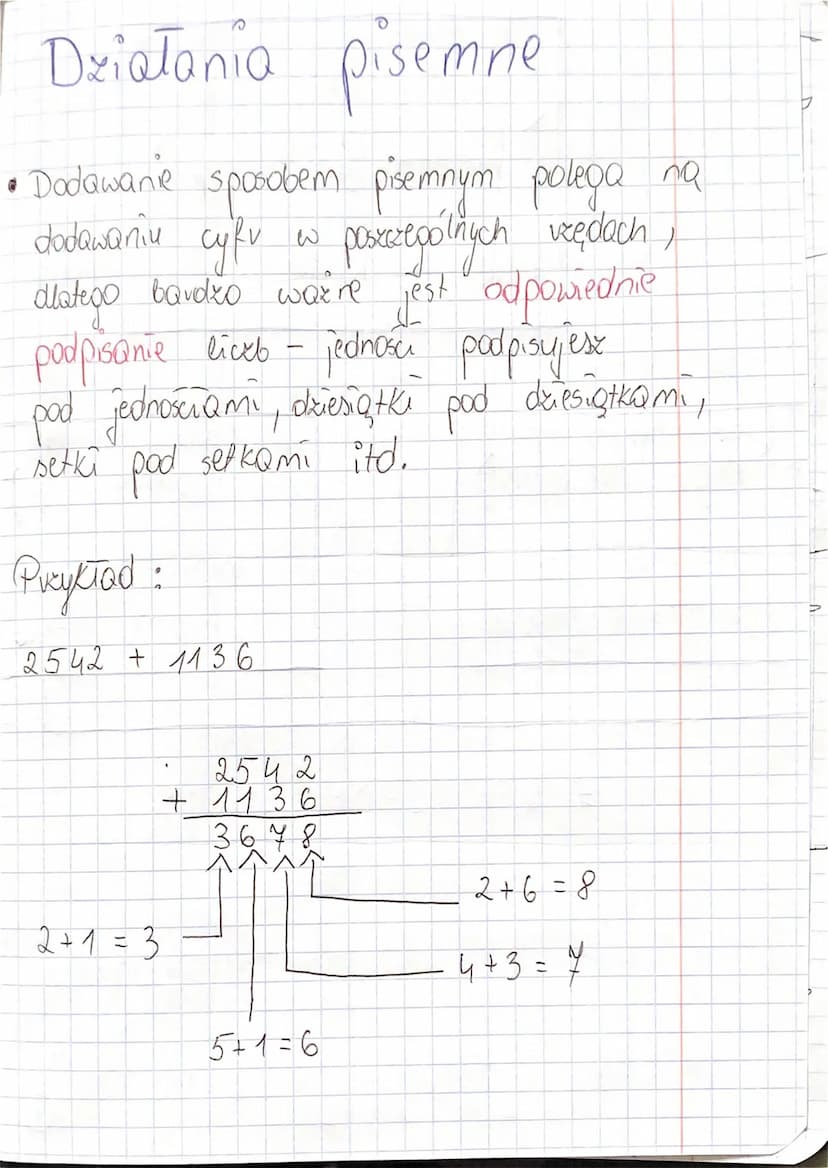 Działania pisemne
• Dodawanie sposobem pisemnym polega na
dodawaniu cyfr w poszczególnych rzędach,
dlatego bardzo ważne jest odpowiednie
podpisanie liczb - jedności podpisujesz
pod jednościami, dziesiątki pod dziesiątkami,
setki pod setkami itd.
Przykład:
2542 + 1136
2542
+ 1136
3678
2+6 = 8
2+1 = 3
4+3 = 7
5+1=6